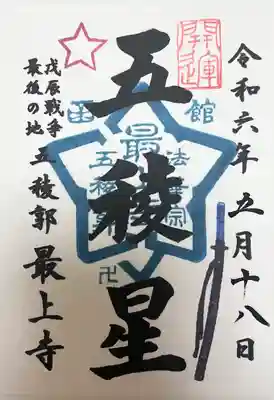 令和六年五月十八日
開運
函館
法華宗
最
五稜郭
卍
五稜星
戊辰戦争
最後の地
五稜郭 最上寺